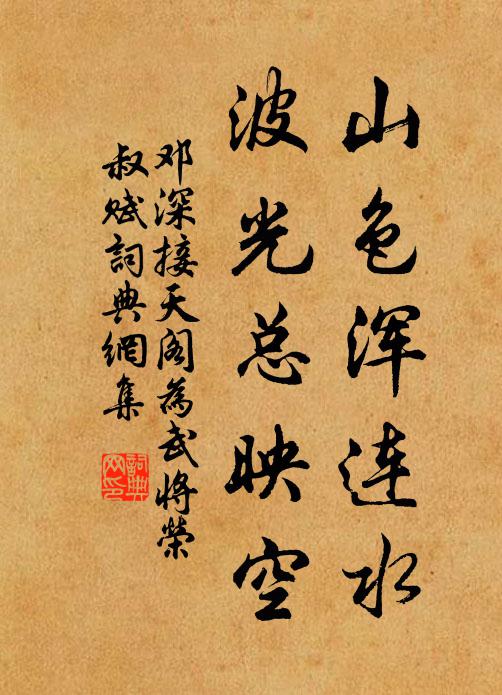 山色浑连水
波光总映空
邓深接天阁为武将荣
叔赋詞典網集
詞典
网印